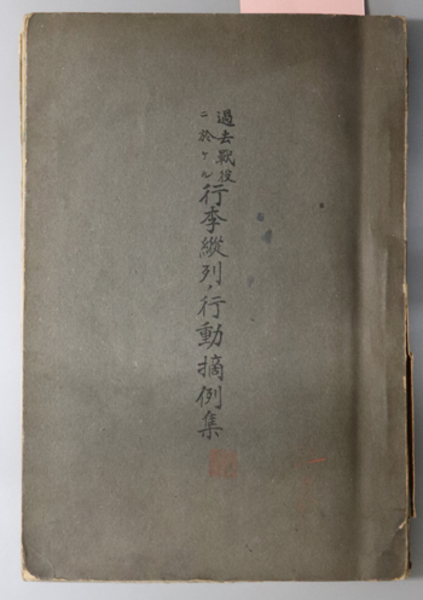 過去戰役
ニ於ケル
行李縱列ノ行動摘例集